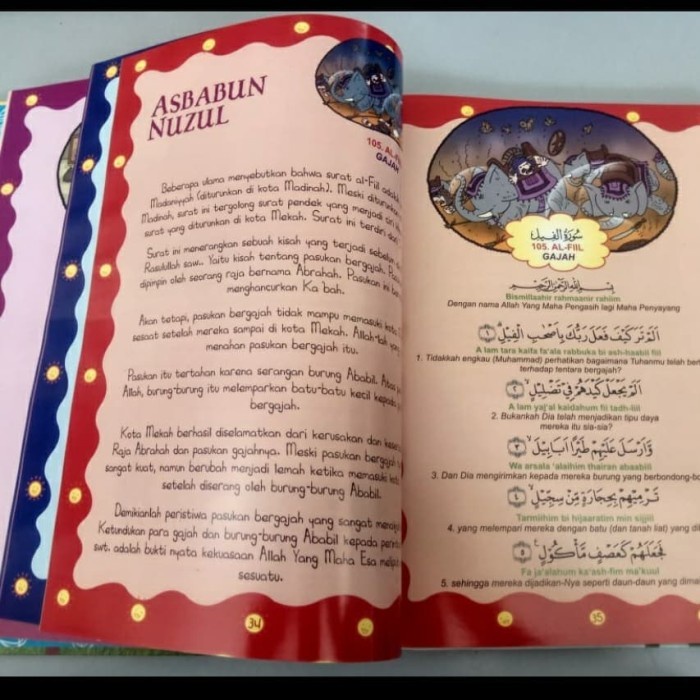 ASBABUN
NUZUL
105. AL-FI
GAJAH
Beberapa ulama menyebutkan bahwa surat al-Fiil
Madaniyyah (diturunkan di kota Madinah). Meski diturunkan
Madinah, surat ini tergolong surat pendek yang menjadi
surat yang diturunkan di kota Mekah. Surat ini terdiri
Surat ini menerangkan sebuah kisah yang terjadi sebelum
Rasulullah saw.. Yaitu kisah tentang pasukan bergajah.
dipimpin oleh seorang raja bernama Abrahah. Pasukan ini
menghancurkan Ka'bah.
Akan tetapi, pasukan bergajah tidak mampu memasuki kota
sesaat setelah mereka sampai di kota Mekah. Allah-lah yang
menahan pasukan bergajah itu.
Pasukan itu tertahan karena serangan burung Ababil. Atas
Allah, burung-burung itu melemparkan batu-batu kecil kepada
bergajah.
Kota Mekah berhasil diselamatkan dari kerusakan dan
Raja Abrahah dan pasukan gajahnya. Meski pasukan bergajah
sangat kuat, namun berubah menjadi lemah ketika memasuki
setelah diserang oleh burung-burung Ababil.
Demikianlah peristiwa pasukan bergajah yang sangat
Ketundukan para gajah dan burung-burung Ababil kepada
swt. adalah bukti nyata kekuasaan Allah Yang Maha Esa
sesuatu.
34
سُورَةُ الْفِيل
105. AL-FIIL
GAJAH
بِسْمِ اللهِ الرَّحْمٰنِ الرَّحِيْمِ
Bismillaahir rahmaanir rahiim
Dengan nama Allah Yang Maha Pengasih lagi Maha Penyayang
اَلَمْ تَرَ كَيْفَ فَعَلَ رَبُّكَ بِاَصْحٰبِ الْفِيْلِۗ ١
A lam tara kaifa fa'ala rabbuka bi ash-haabil fiil
1. Tidakkah engkau (Muhammad) perhatikan bagaimana Tuhanmu telah
terhadap tentara bergajah?
اَلَمْ يَجْعَلْ كَيْدَهُمْ فِيْ تَضْلِيْلٍۙ ٢
A lam yaj'al kaidahum fii tadh-liil
2. Bukankah Dia telah menjadikan tipu daya
mereka itu sia-sia?
وَاَرْسَلَ عَلَيْهِمْ طَيْرًا اَبَابِيْلَۙ ٣
Wa arsala 'alaihim thairan abaabiil
3. Dan Dia mengirimkan kepada mereka burung yang
تَرْمِيْهِمْ بِحِجَارَةٍ مِّنْ سِجِّيْلٍۙ ٤
Tarmiihim bi hijaaratim min sijjiil
4. yang melempari mereka dengan batu (dan tanah liat) yang
فَجَعَلَهُمْ كَعَصْفٍ مَّأْكُوْلٍ ٥
Fa ja'alahum ka'ash-fim ma'kuul
5. sehingga mereka dijadikan-Nya seperti daun-daun yang
35